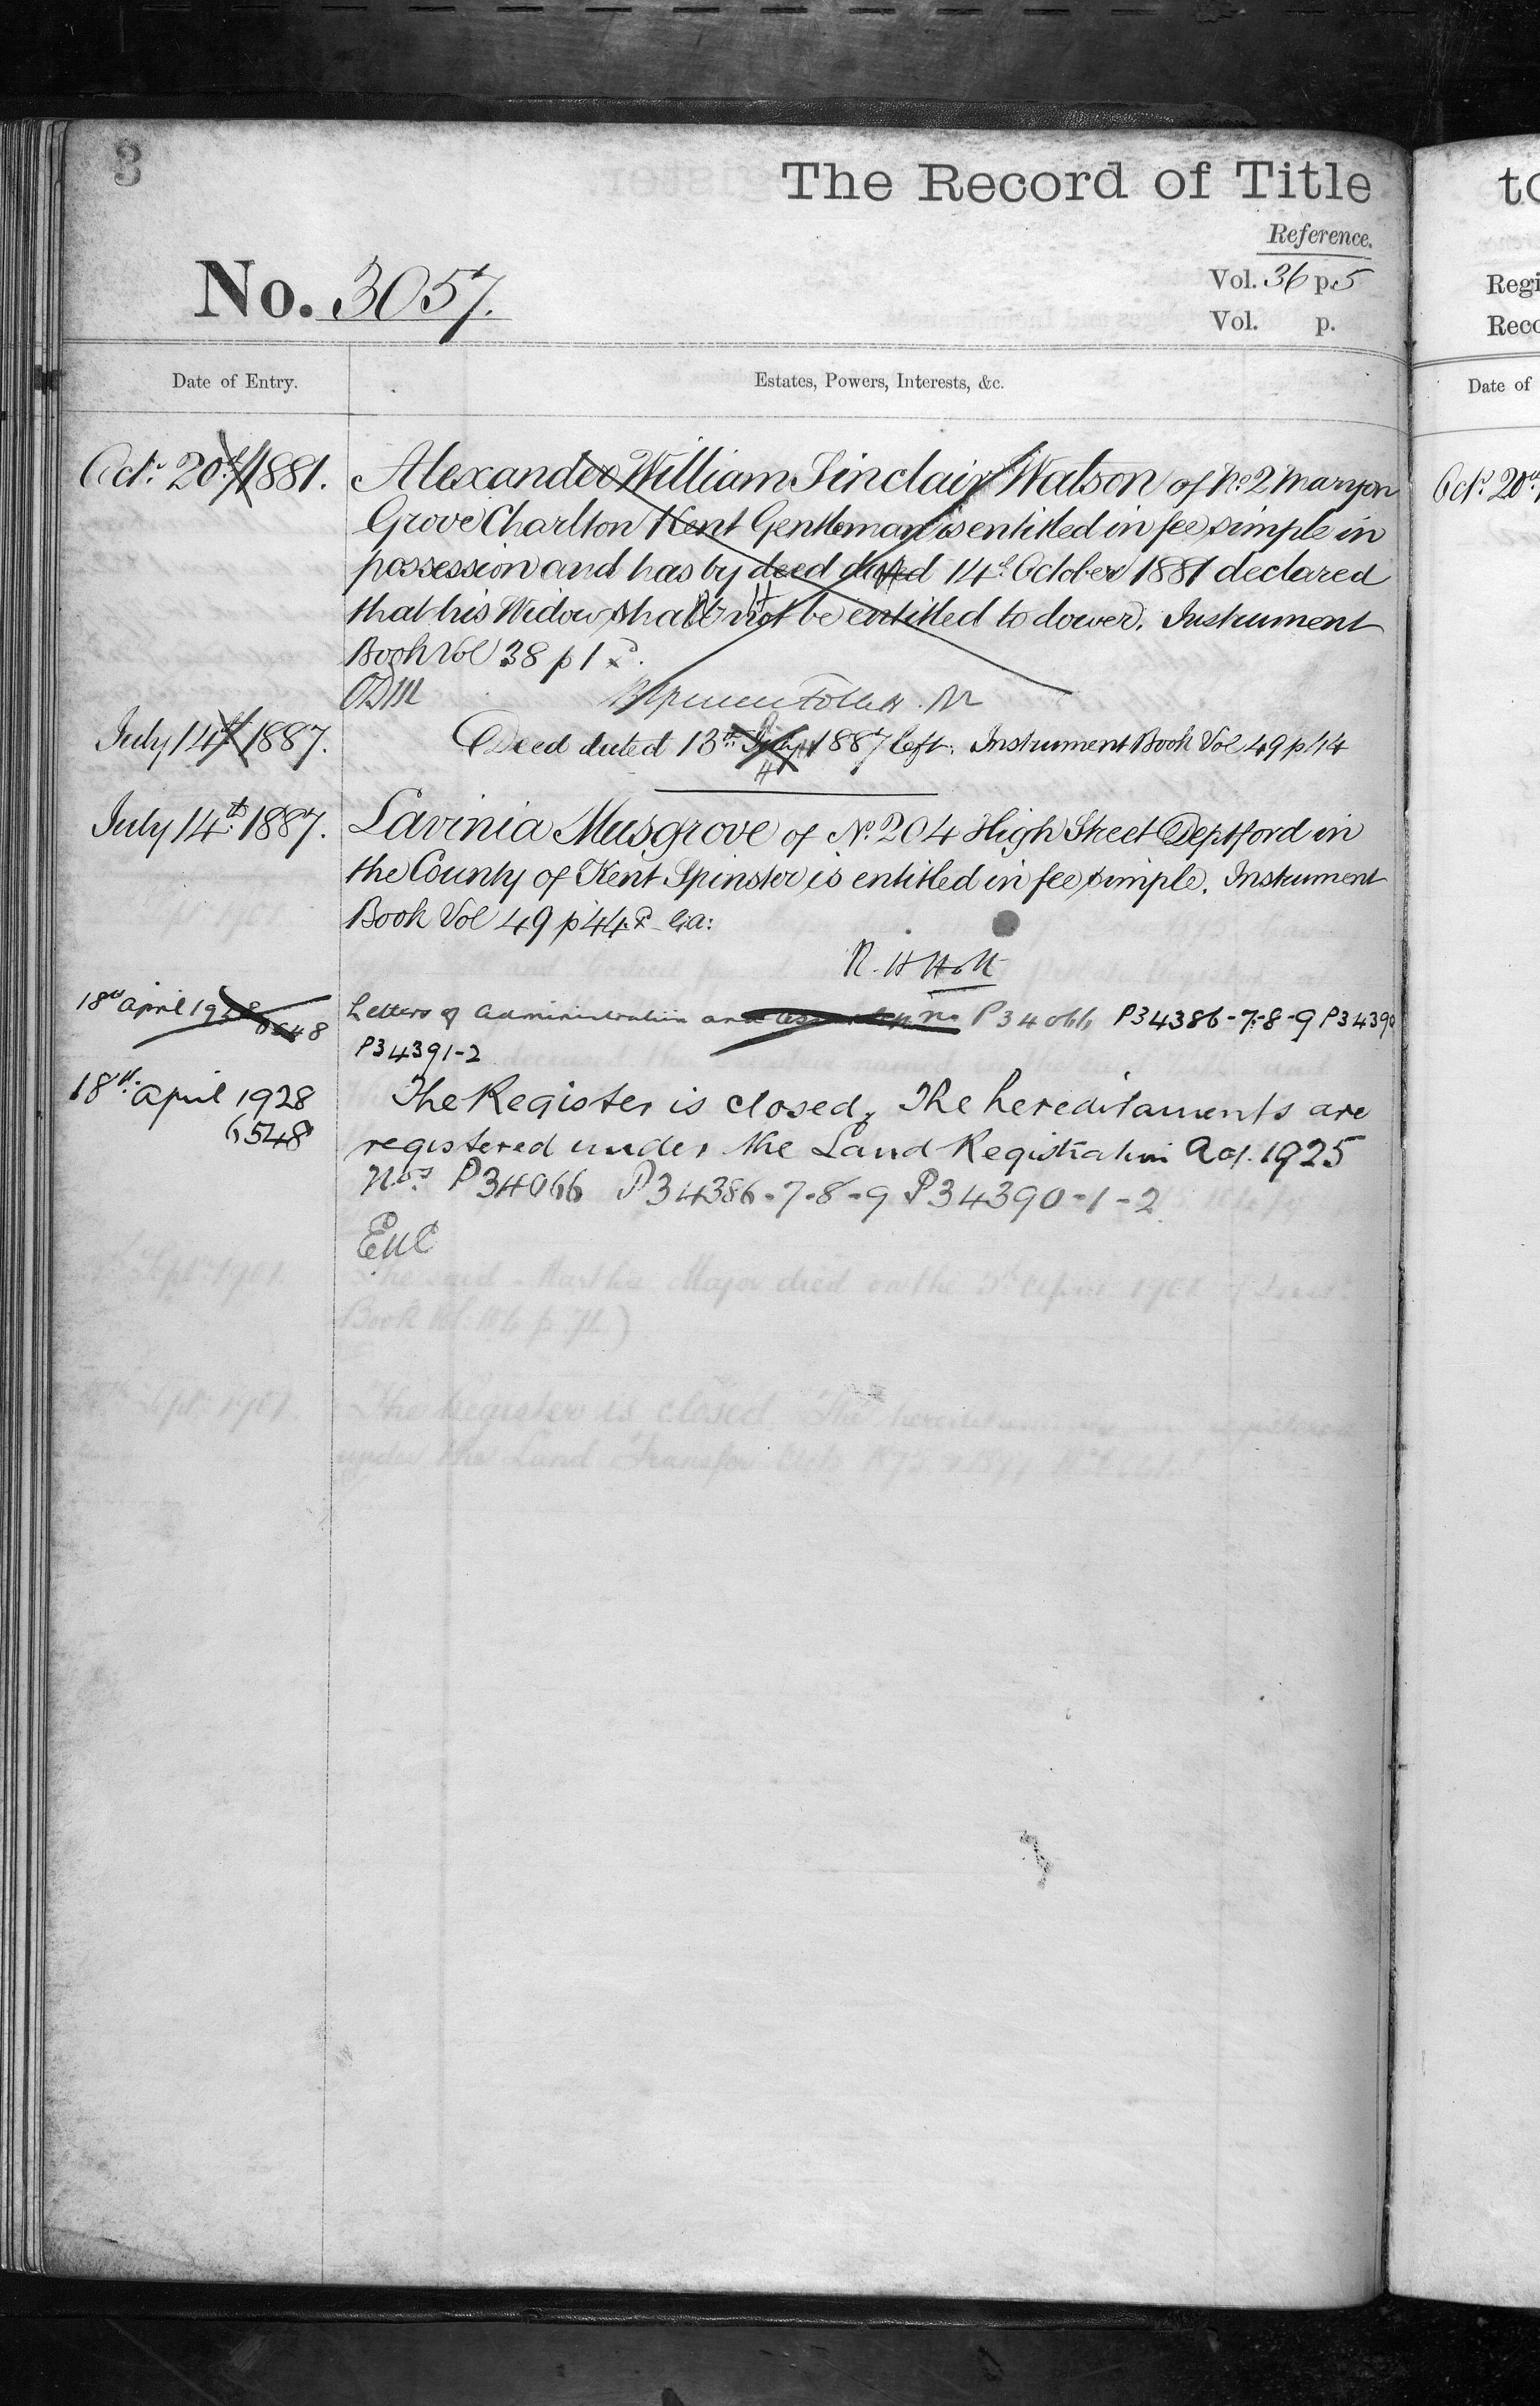 3
The Record of Title
Reference.
No. 3057.
Vol. 36 p. 5
Vol. p.
Date of Entry.
Estates, Powers, Interests, &c.
Oct. 20th 1881.
Alexander William Sinclair Watson of No. 2 Maryon
Grove Charlton Kent Gentleman is entitled in fee simple in
possession and has by deed dated 14th October 1881 declared
that his Widow shall not be entitled to dower. Instrument
Book Vol 38 p 1
July 14th 1887.
Deed dated 13th July 1887 left. Instrument Book Vol 49 p 44
July 14th 1887.
Lavinia Musgrove of No. 204 High Street Deptford in
the County of Kent Spinster is entitled in fee simple. Instrument
Book Vol 49 p 44.
R. H Holt
18th April 1928
Letters of Administration and P34066 P34386-7-8-9 P34390
P34391-2
18th April 1928
6548
The Register is closed, The hereditaments are
registered under the Land Registration Act. 1925
Nos. P34066 P34386-7-8-9 P34390-1-2
to
Regi
Reco
Date of
Oct. 20th